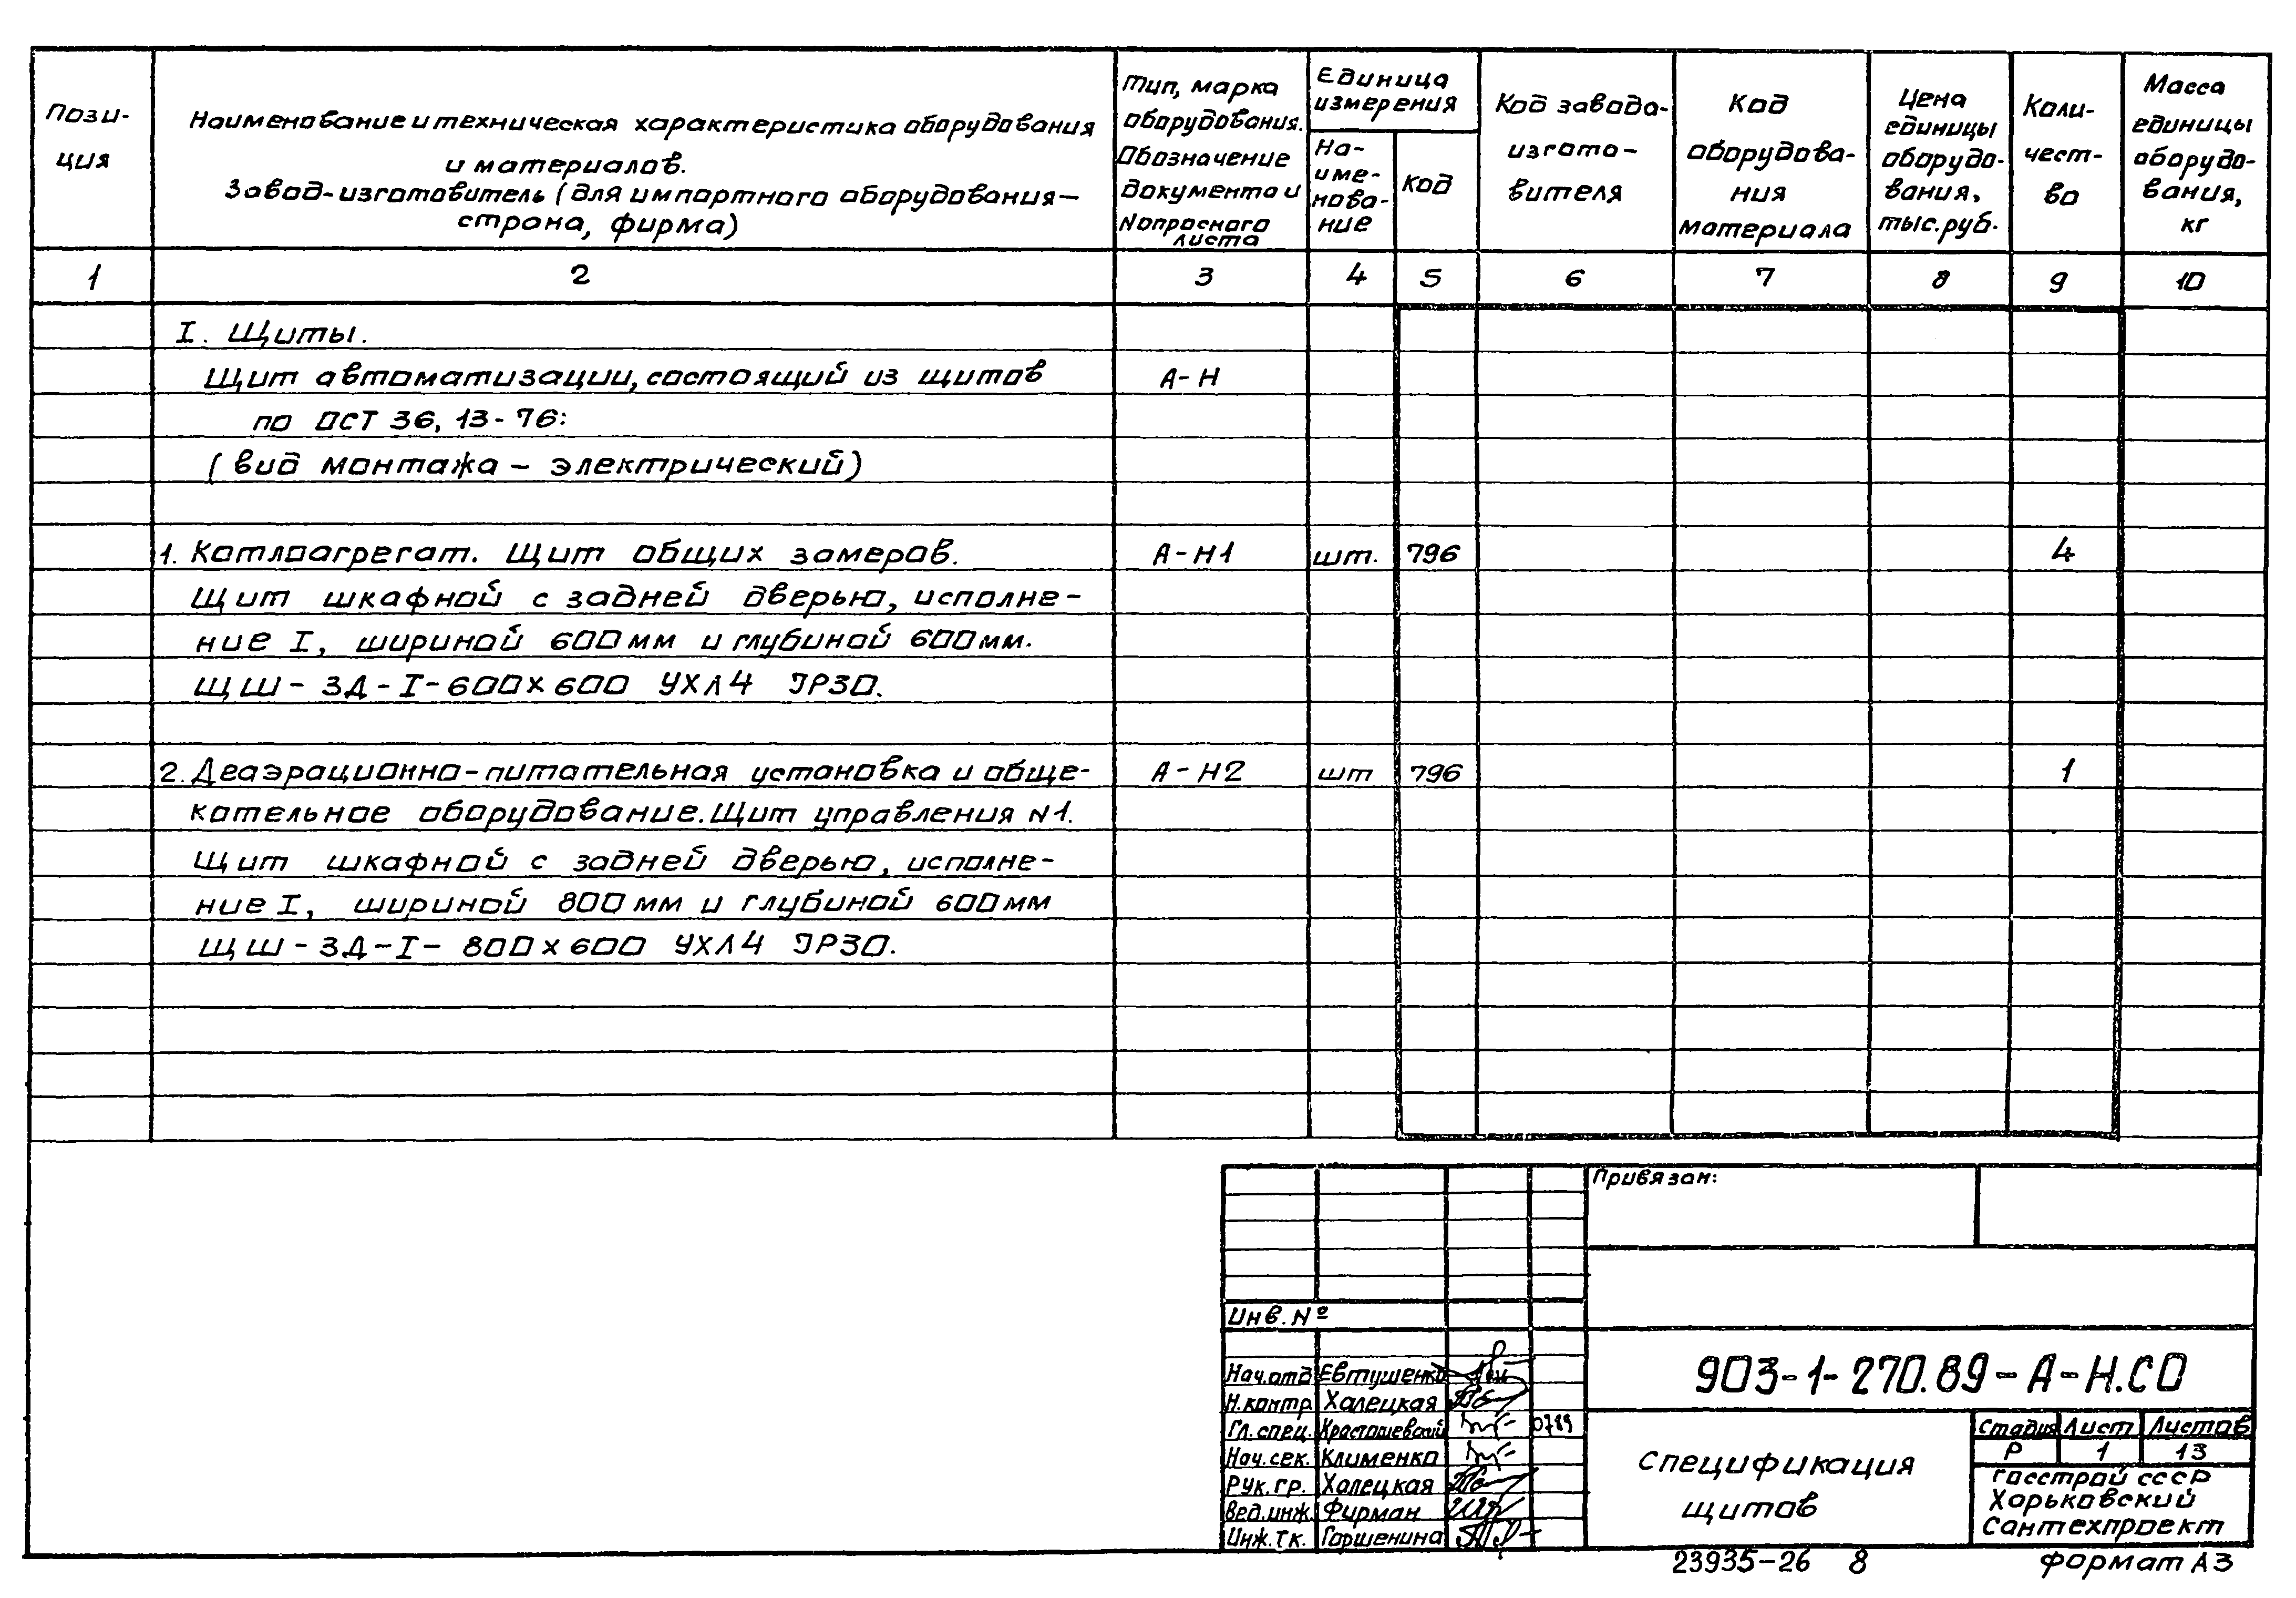 Пози-
ция
Наименование и техническая характеристика оборудования
и материалов.
Завод-изготовитель (для импортного оборудования-
страна, фирма)
Тип, марка
оборудования.
Обозначение
документа и
№опросного
листа
Единица
измерения
На-
име-
нова-
ние
Код
Код завода-
изгото-
вителя
Код
оборудова-
ния
материала
Цена
единицы
оборудо-
вания,
тыс.руб.
Коли-
чест-
во
Масса
единицы
оборудо-
вания,
кг
1 2 3 4 5 6 7 8 9 10
I. Щиты.
Щит автоматизации, состоящий из щитов А-Н
по ОСТ 36, 13-76:
(вид монтажа - электрический)
1. Котлоагрегат. Щит общих замеров. А-Н1 шт. 796 4
Щит шкафной с задней дверью, исполне-
ние I, шириной 600мм и глубиной 600мм.
ЩШ-ЗД-I-600х600 УХЛ4 IP30.
2. Деаэрационно-питательная установка и обще- А-Н2 шт 796 1
котельное оборудование. Щит управления N1.
Щит шкафной с задней дверью, исполне-
ние I, шириной 800мм и глубиной 600мм
ЩШ-ЗД-I-800х600 УХЛ4 IP30.
Привязан:
Инв. №
Нач.отд Евтушенко
Н.контр Халецкая
Гл.спец. Красташевский 0789
Нач.сек. Клименко
Рук.гр. Халецкая
Вед.инж. Фирман
Инж.Iк. Горшенина
903-1-270.89-А-Н.СО
Спецификация
щитов
Стадия Лист Листов
Р 1 13
Госстрой СССР
Харьковский
Сантехпроект
23935-26 8 формат А3